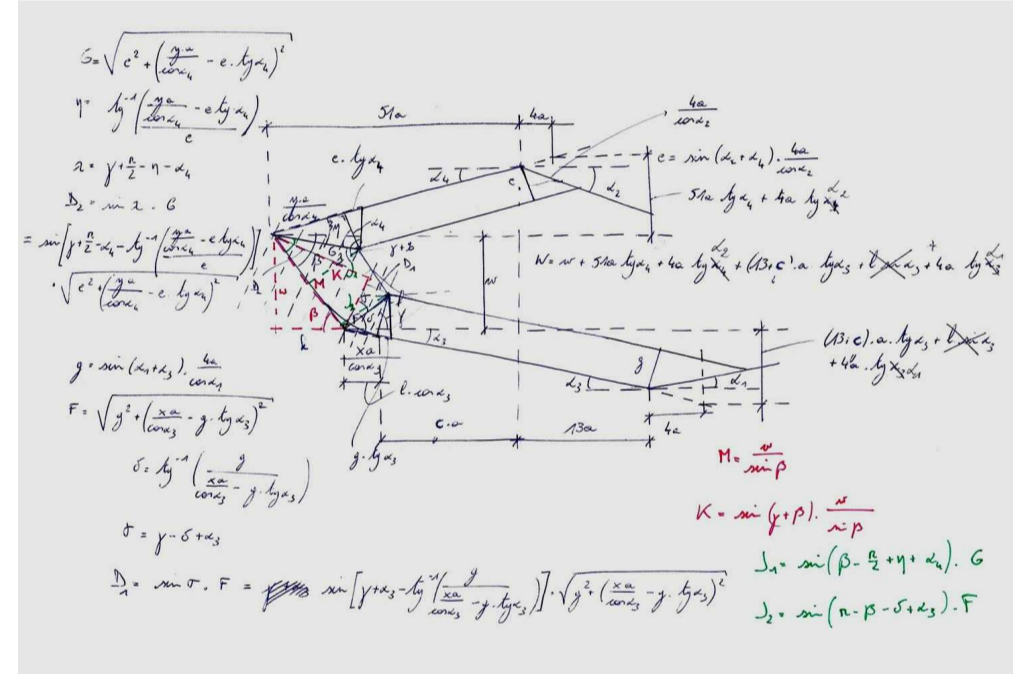 G = √(e² + (y·a/cosα₄ − e·tgα₄)²)
η = tg⁻¹((y·a/cosα₄ − e tgα₄)/e)
λ = γ + π/2 − η − α₄
D₂ = sin λ · G
= sin[γ + π/2 − α₄ − tg⁻¹((y·a/cosα₄ − e tgα₄)/e)]
· √(e² + (y·a/cosα₄ − e·tgα₄)²)
g = sin(α₁+α₃) · 4a/cosα₁
F = √(g² + (xa/cosα₃ − g·tgα₃)²)
δ = tg⁻¹(g/(xa/cosα₃ − g·tgα₃))
σ = γ − δ + α₃
D₁ = sin σ · F = sin[γ+α₃ − tg⁻¹(g/(xa/cosα₃ − g·tgα₃))] · √(g² + (xa/cosα₃ − g·tgα₃)²)
51a
4a
4a/cosα₂
e·tgα₄
α₄
e
α₂
e = sin(α₂+α₄) · 4a/cosα₂
51a tgα₄ + 4a tg α₂
y·a/cosα₄
η
α₄
G
γ+δ
D₁
β
K
M
w
β
k
w
W = w + 51a tgα₄ + 4a tg α₂ + (13+c)·a tgα₃ + 4a tg α₁
α₃
xa/cosα₃
l·cosα₃
g·tgα₃
c·a
13a
4a
g
α₃
α₁
(13+c)·a·tgα₃ +
+ 4a·tg α₁
M = w/sin β
K = sin(γ+β) · w/sin β
J₁ = sin(β − π/2 + η + α₄) · G
J₂ = sin(π − β − δ + α₃) · F